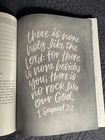 there is none
holy like the
Lord: for there
is none besides
you; there is
no rock like
our God.
1 Samuel 2:2